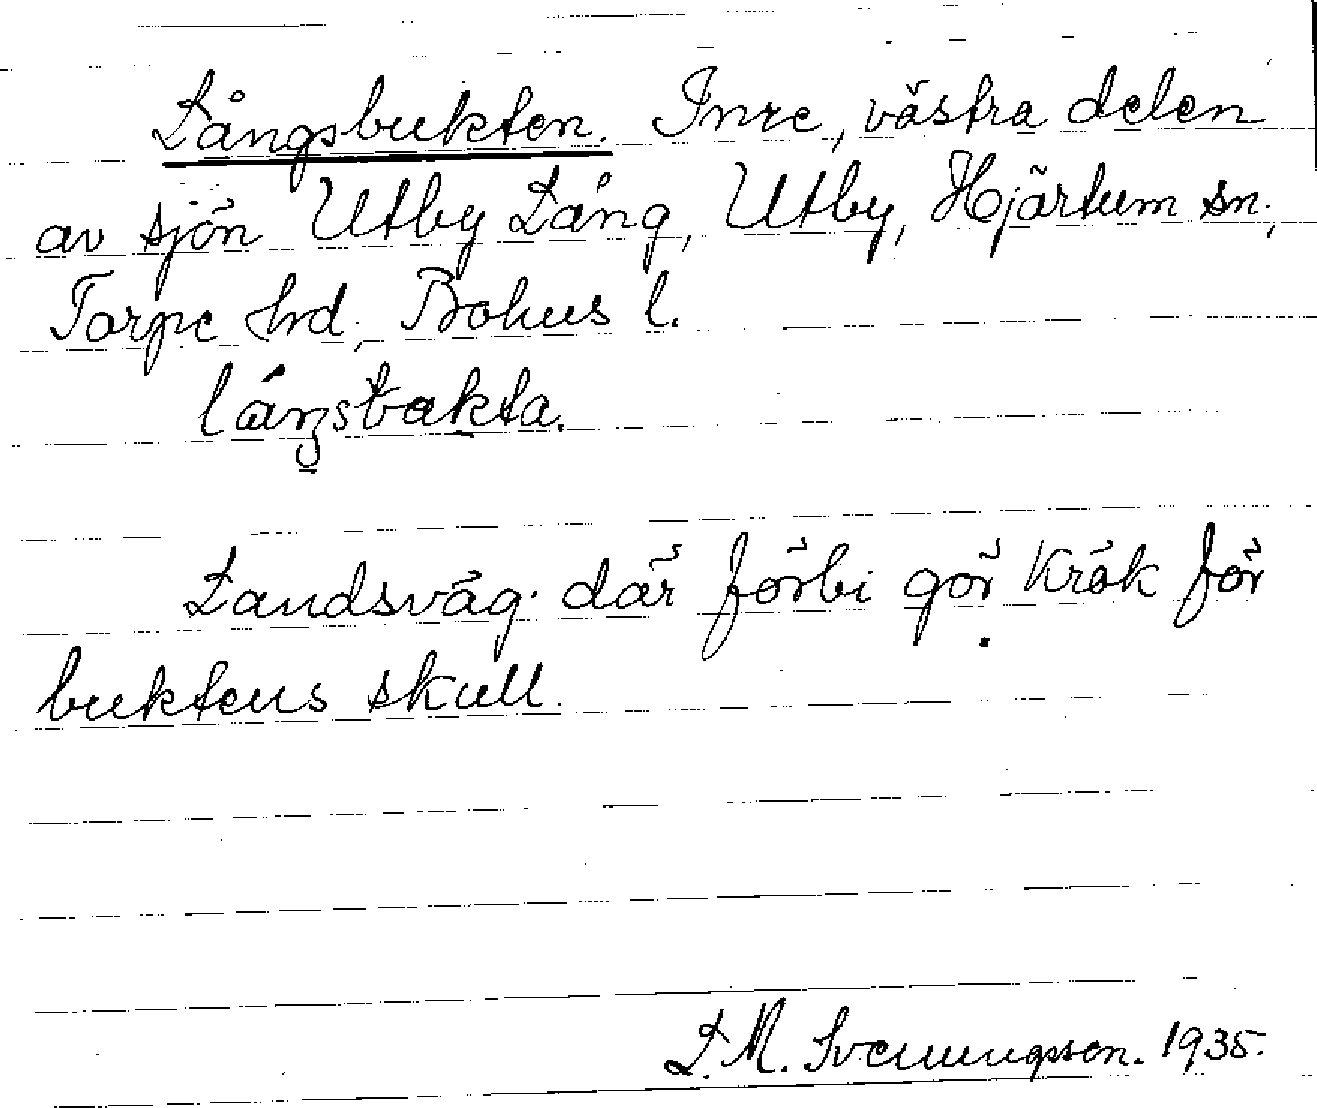 Långsbukten. Inre, västra delen
av sjön Utby Lång, Utby, Hjärtum sn.,
Torpe hrd, Bohus l.
låŋsbakta.
Landsväg. där förbi gör krök för
buktens skull.
L. M. Svenungsson. 1935.